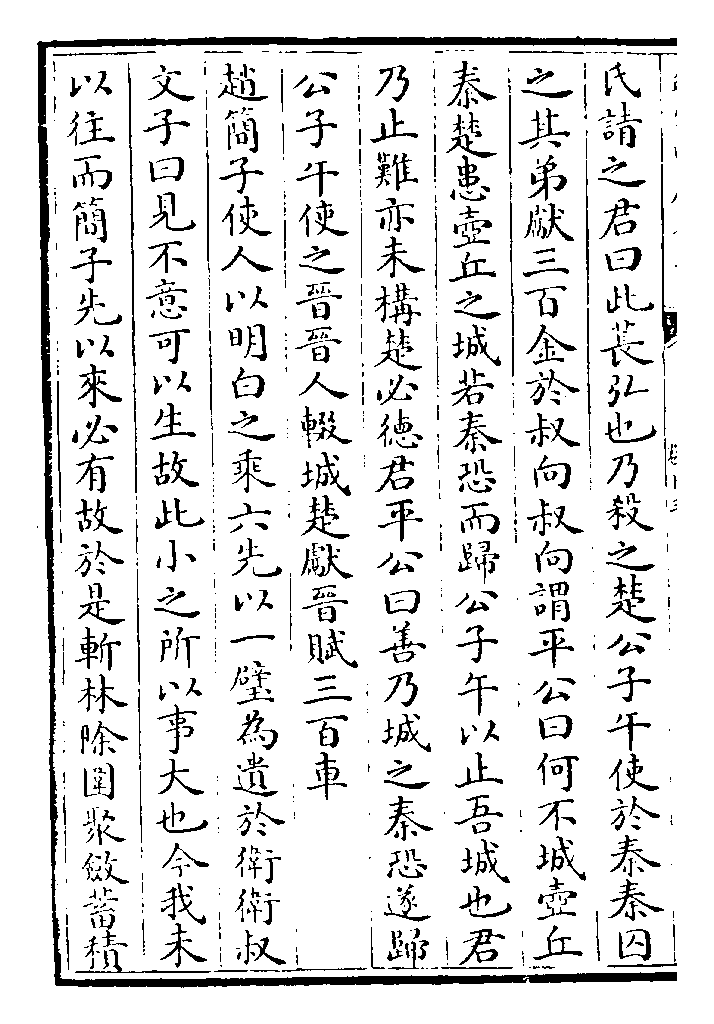 氏請之君曰此萇弘也乃殺之楚公子午使於秦秦囚
之其弟獻三百金於叔向叔向謂平公曰何不城壺丘
秦楚患壺丘之城若秦恐而歸公子午以止吾城也君
乃止難亦未構楚必德君平公曰善乃城之秦恐遂歸
公子午使之晉晉人輟城楚獻晉賦三百車
趙簡子使人以明白之乘六先以一璧為遺於衛衛叔
文子曰見不意可以生故此小之所以事大也今我未
以往而簡子先以來必有故於是斬林除圍聚斂蓄積